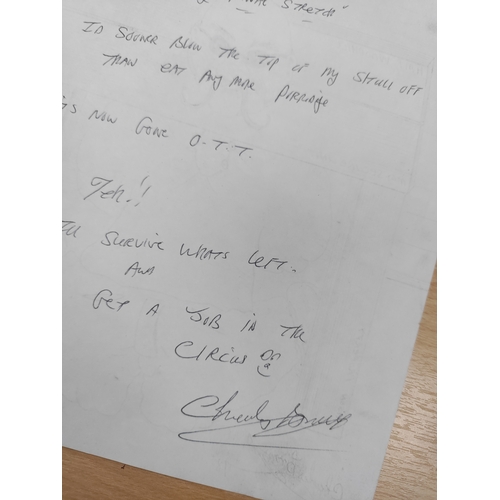 STRETCH"
I'D SOONER BLOW THE TOP OF MY SKULL OFF
THAN EAT ANY MORE PORRIDGE
NOW GONE O.T.T.
Yeh!!
SURVIVE WHATS LEFT.
AND
GET A JOB IN THE
CIRCUS OR
a